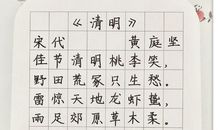 《清明》
宋代 黄庭坚
佳节清明桃李笑，
野田荒冢只生愁。
雷惊天地龙蛇蛰，
雨足郊原草木柔。